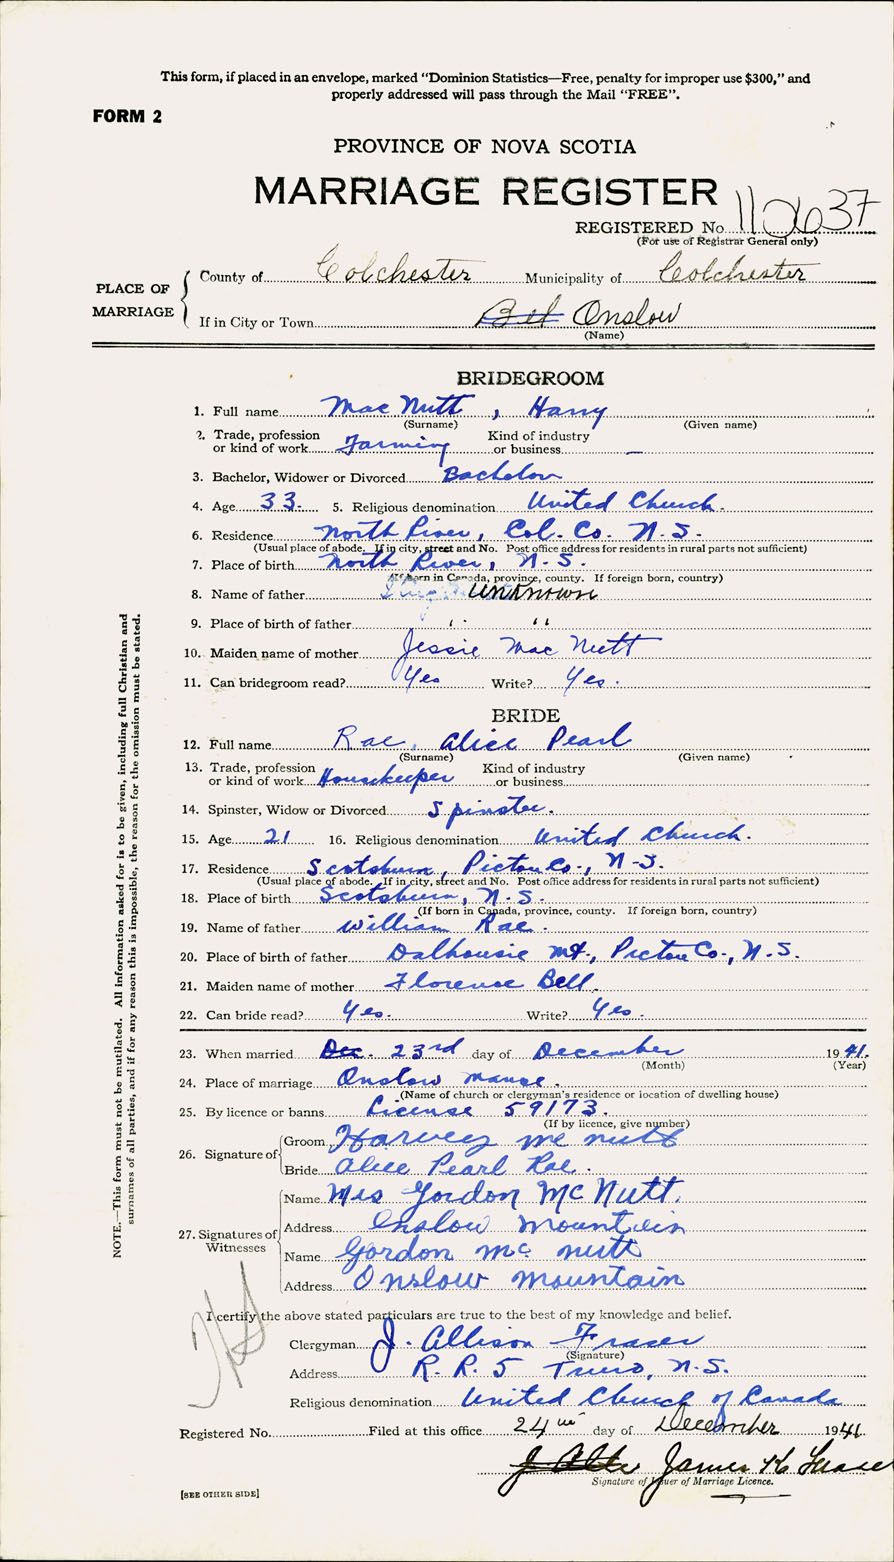 This form, if placed in an envelope, marked “Dominion Statistics—Free, penalty for improper use $300,” and
properly addressed will pass through the Mail “FREE”.
FORM 2
PROVINCE OF NOVA SCOTIA
MARRIAGE REGISTER
REGISTERED No. 112637
(For use of Registrar General only)
PLACE OF MARRIAGE
County of Colchester Municipality of Colchester
If in City or Town Bel Onslow
(Name)
BRIDEGROOM
1. Full name Mac Nutt, Harry
(Surname) (Given name)
2. Trade, profession or kind of work Farming Kind of industry or business —
3. Bachelor, Widower or Divorced Bachelor
4. Age 33. 5. Religious denomination United Church.
6. Residence North River, Col. Co. N.S.
(Usual place of abode. If in city, street and No. Post office address for residents in rural parts not sufficient)
7. Place of birth North River, N.S.
(If born in Canada, province, county. If foreign born, country)
8. Name of father Unknown
9. Place of birth of father " "
10. Maiden name of mother Jessie Mac Nutt
11. Can bridegroom read? Yes Write? Yes.
BRIDE
12. Full name Rae, Alice Pearl
(Surname) (Given name)
13. Trade, profession or kind of work Housekeeper Kind of industry or business
14. Spinster, Widow or Divorced Spinster.
15. Age 21 16. Religious denomination United Church.
17. Residence Scotsburn, Pictou Co., N.S.
(Usual place of abode. If in city, street and No. Post office address for residents in rural parts not sufficient)
18. Place of birth Scotsburn, N.S.
(If born in Canada, province, county. If foreign born, country)
19. Name of father William Rae.
20. Place of birth of father Dalhousie Mt., Pictou Co., N.S.
21. Maiden name of mother Florence Bell.
22. Can bride read? Yes. Write? Yes.
23. When married Dec. 23rd day of December 1941.
(Month) (Year)
24. Place of marriage Onslow Manse.
(Name of church or clergyman's residence or location of dwelling house)
25. By licence or banns License 59173.
(If by licence, give number)
26. Signature of
Groom Harvey Mc Nutt
Bride Alice Pearl Rae.
27. Signatures of Witnesses
Name Mrs Gordon McNutt.
Address Onslow Mountain
Name Gordon Mc Nutt
Address Onslow Mountain
I certify the above stated particulars are true to the best of my knowledge and belief.
Clergyman J. Allison Fraser
(Signature)
Address R. R. 5 Truro, N.S.
Religious denomination United Church of Canada
Registered No. Filed at this office 24 day of December 1941
James Fraser
Signature of Issuer of Marriage Licence.
[SEE OTHER SIDE]
NOTE.—This form must not be mutilated. All information asked for is to be given, including full Christian and
surnames of all parties, and if for any reason this is impossible, the reason for the omission must be stated.